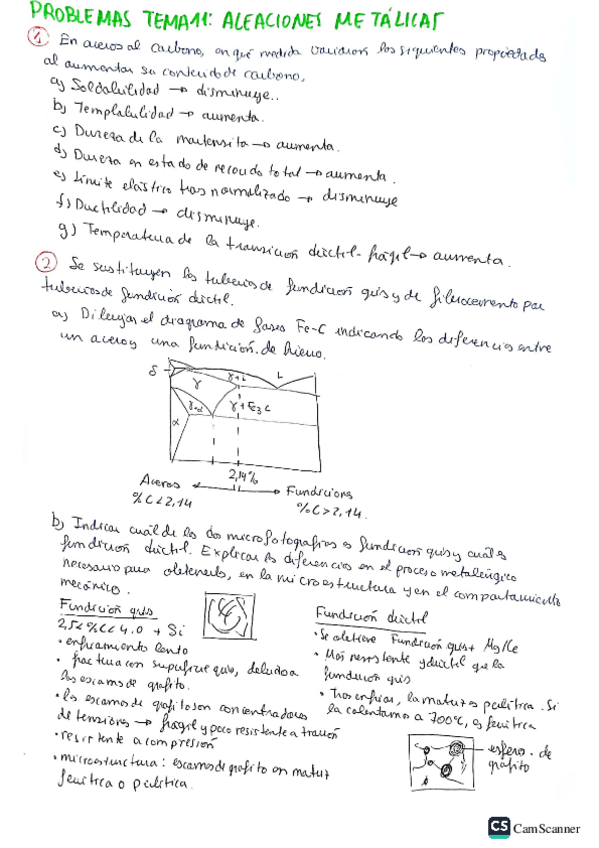 PROBLEMAS TEMA 11: ALEACIONES METÁLICAS
1 En aceros al carbono, en qué medida variaran las siguientes propiedades
al aumentar su contenido de carbono.
a) Soldabilidad → disminuye..
b) Templabilidad → aumenta.
c) Dureza de la martensita → aumenta.
d) Dureza en estado de recocido total → aumenta.
e) Límite elástico tras normalizado → disminuye
f) Ductilidad → disminuye.
g) Temperatura de la transición dúctil-frágil → aumenta.
2 Se sustituyen las tuberías de fundición gris y de fibrocemento por
tuberías de fundición dúctil.
a) Dibujar el diagrama de fases Fe-C indicando las diferencias entre
un acero y una fundición de hierro.
δ
γ+L
L
γ
γ+α
γ+Fe3C
α
2,14%
Aceros
Fundiciones
%C<2,14
%C>2,14.
b) Indicar cuál de las dos microfotografías es fundición gris y cuál es
fundición dúctil. Explicar las diferencias en el proceso metalúrgico
necesario para obtenerlas, en la microestructura y en el comportamiento
mecánico.
Fundición gris
2,5<%C<4.0 + Si
• enfriamiento lento
• fractura con superficie gris, debido a
las escamas de grafito.
• las escamas de grafito son concentradores
de tensiones → frágil y poco resistente a tracción
• resistente a compresión
• microestructura: escamas de grafito en matriz
ferrítica o perlítica.
Fundición dúctil
• Se obtiene Fundición gris + Mg/Ce
• Más resistente y dúctil que la
fundición gris
• Tras enfriar, la matriz es perlítica. Si
la calentamos a 700°C, es ferrítica
esfero. de
grafito
CS CamScanner